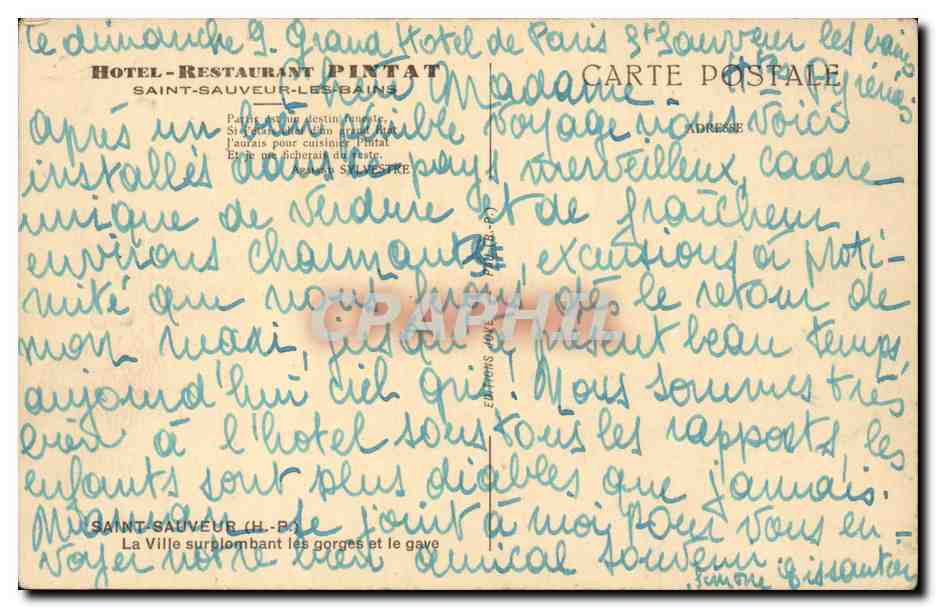 le dimanche 9. Grand Hotel de Paris St Sauveur les bains
Htes Pyrénées
HOTEL-RESTAURANT PINTAT
SAINT-SAUVEUR-LES-BAINS
CARTE POSTALE
ADRESSE
Partir est un destin funeste.
Si j'étais chef d'un grand Etat
J'aurais pour cuisinier Pintat
Et je me ficherais du reste.
Agathon SYLVESTRE
Chère Madame
après un pénible voyage nous voici
installés dans le pays merveilleux, cadre
unique de verdure et de fraîcheur
environs charmants, excursions à proxi-
mité que nous ferons dès le retour de
mon mari, jusqu'à présent beau temps,
aujourd'hui ciel gris. Nous sommes très
bien à l'hotel sous tous les rapports les
enfants sont plus diables que jamais.
se joint à moi pour vous en
voyer notre bien amical souvenir
Simone
EDITIONS JOVE PAU (B.-P.)
CRAPHIL
SAINT-SAUVEUR (H.-P.)
La Ville surplombant les gorges et le gave